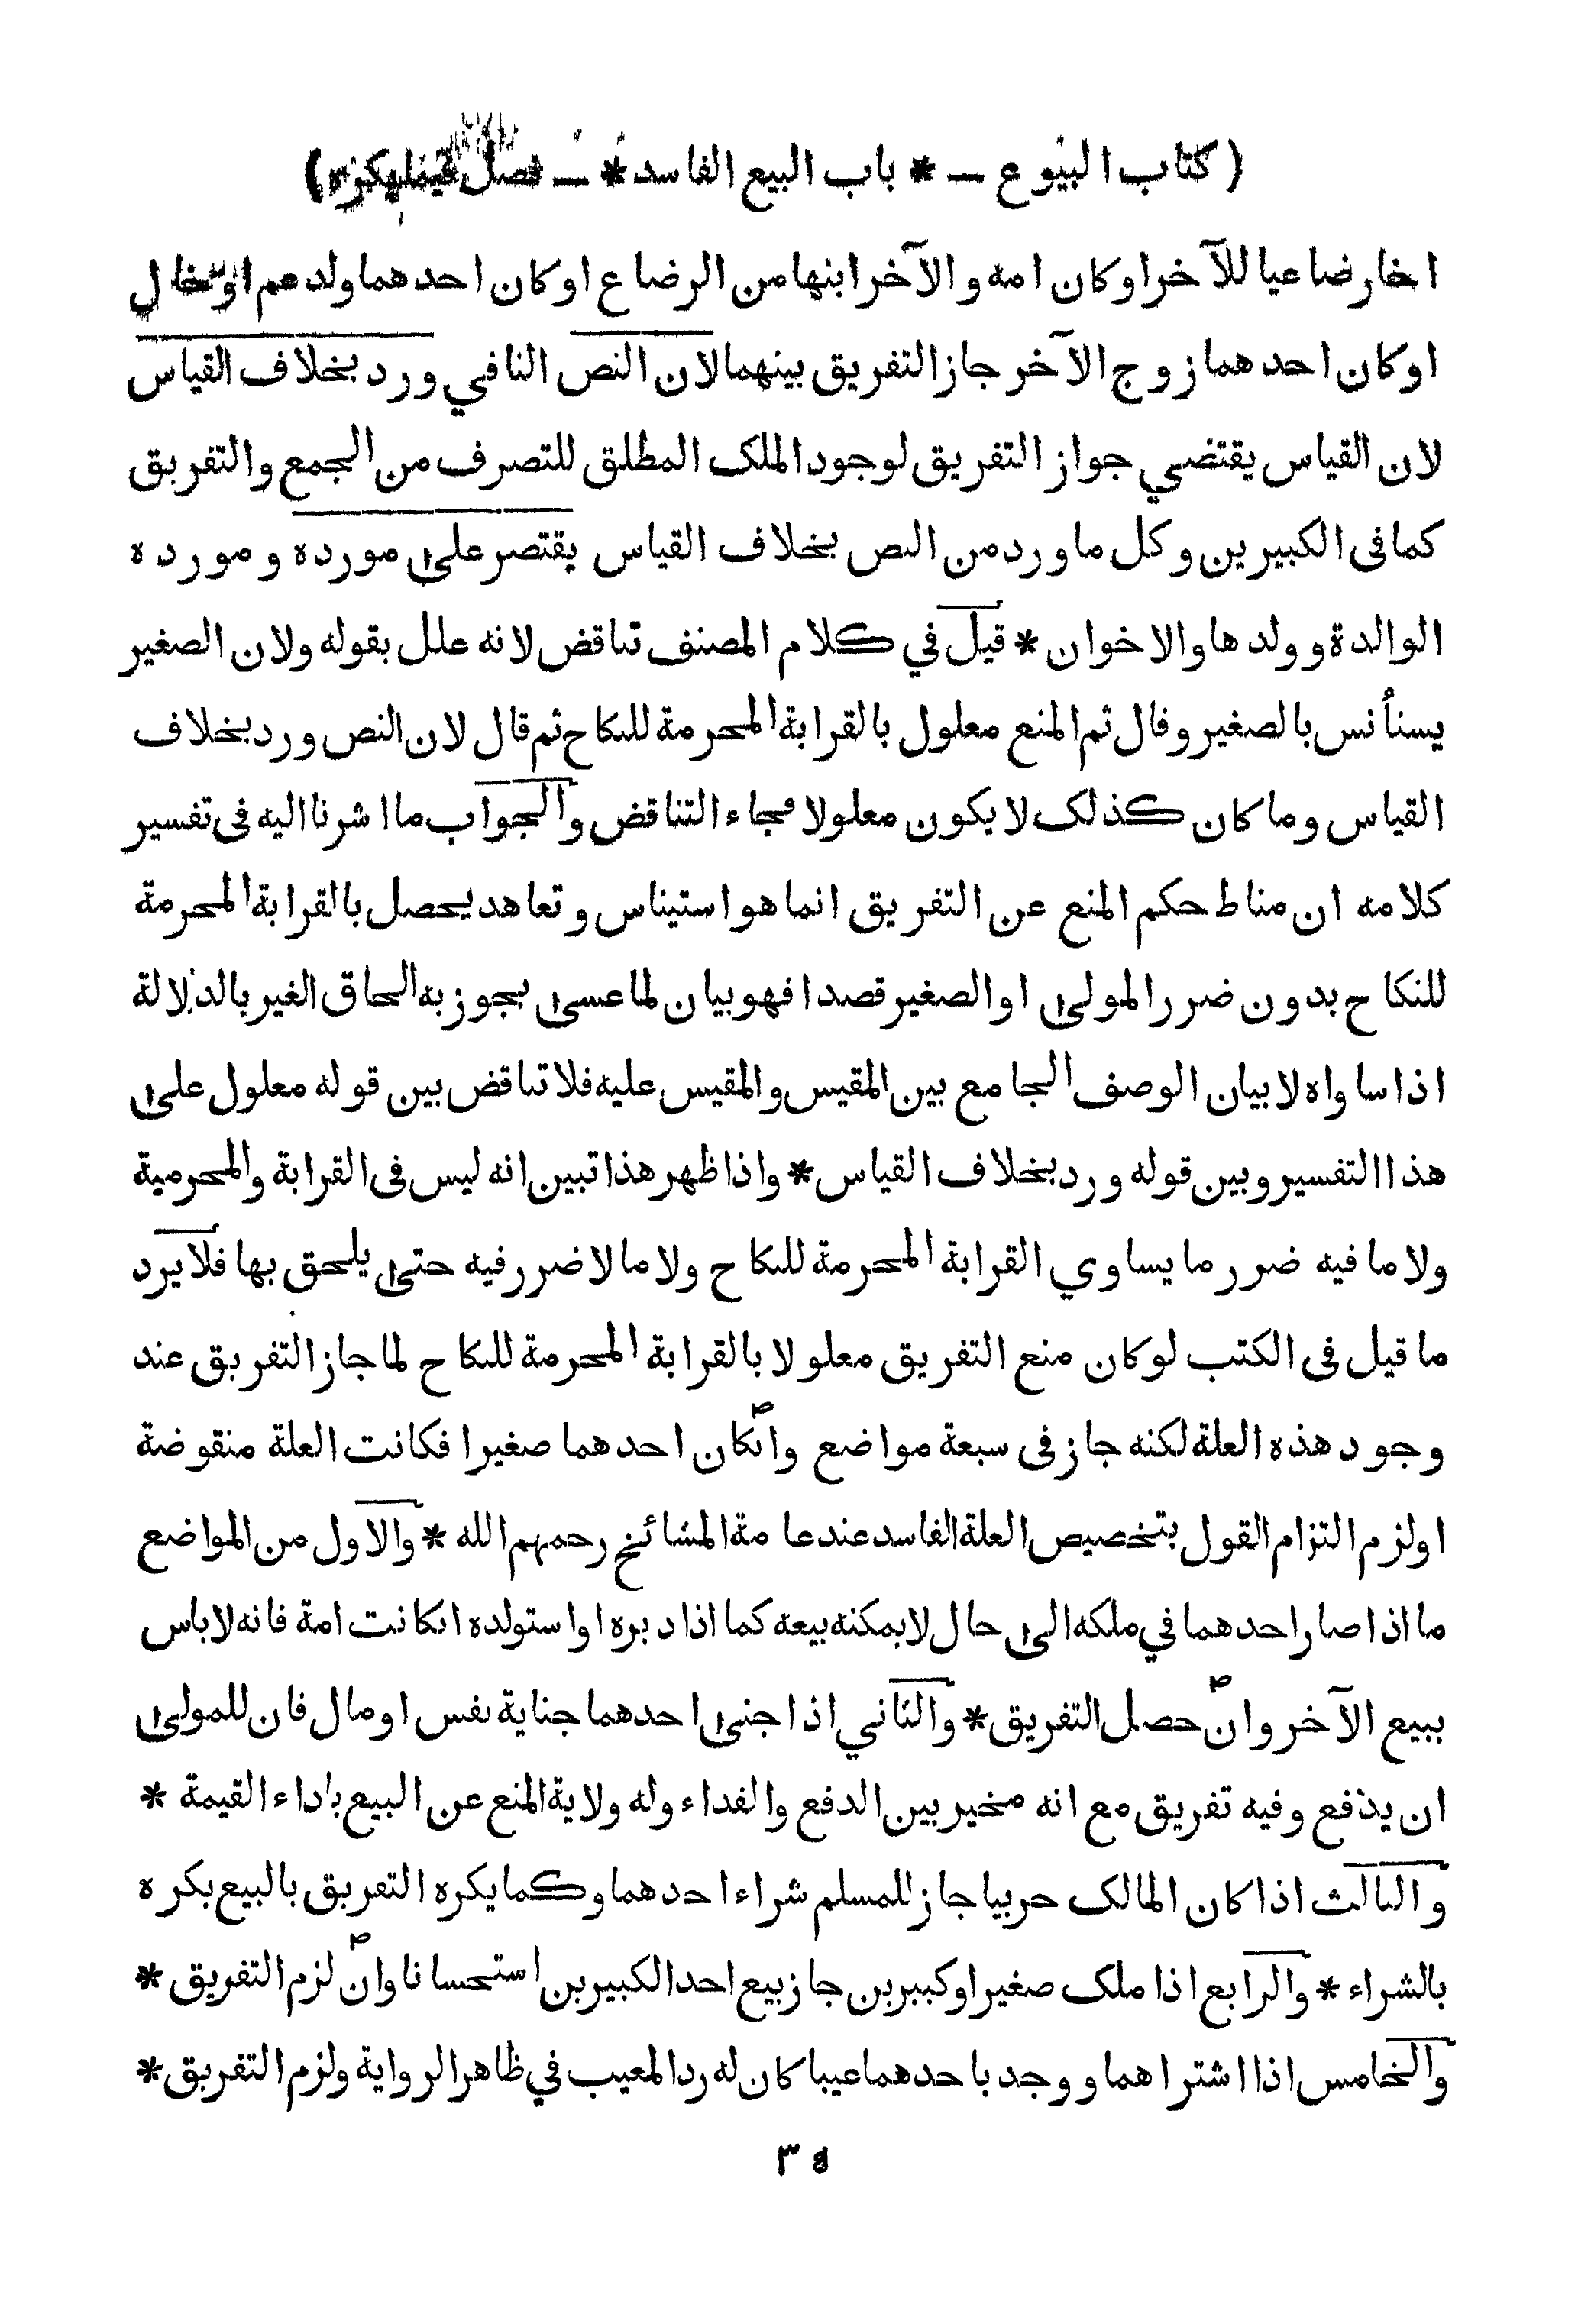 ( كتاب البيوع — * باب البيع الفاسد * — فصل فيما يكره )
اخا رضاعيا للآخر او كان امه والآخر ابنها من الرضاع او كان احدهما ولد عم او خال
او كان احدهما زوج الآخر جاز التفريق بينهما لان النص النافي ورد بخلاف القياس
لان القياس يقتضي جواز التفريق لوجود الملك المطلق للتصرف من الجمع والتفريق
كما فى الكبيرين وكل ما ورد من النص بخلاف القياس يقتصر على مورده ومورده
الوالدة وولدها والاخوان * قيل في كلام المصنف تناقض لانه علل بقوله ولان الصغير
يستأنس بالصغير وقال ثم المنع معلول بالقرابة المحرمة للنكاح ثم قال لان النص ورد بخلاف
القياس وما كان كذلك لا يكون معلولا فجاء التناقض والجواب ما اشرنا اليه فى تفسير
كلامه ان مناط حكم المنع عن التفريق انما هو استيناس وتعاهد يحصل بالقرابة المحرمة
للنكاح بدون ضرر المولى او الصغير قصدا فهو بيان لما عسى يجوز به الحاق الغير بالدلالة
اذا ساواه لا بيان الوصف الجامع بين المقيس والمقيس عليه فلا تناقض بين قوله معلول على
هذا التفسير وبين قوله ورد بخلاف القياس * واذا ظهر هذا تبين انه ليس فى القرابة والمحرمية
ولا ما فيه ضرر ما يساوي القرابة المحرمة للنكاح ولا ما لا ضرر فيه حتى يلحق بها فلا يرد
ما قيل فى الكتب لو كان منع التفريق معلولا بالقرابة المحرمة للنكاح لما جاز التفريق عند
وجود هذه العلة لكنه جاز فى سبعة مواضع وانكان احدهما صغيرا فكانت العلة منقوضة
او لزم التزام القول بتخصيص العلة الفاسد عند عامة المشائخ رحمهم الله * والاول من المواضع
ما اذا صار احدهما في ملكه الى حال لا يمكنه بيعه كما اذا دبره او استولده انكانت امة فانه لاباس
ببيع الآخر وان حصل التفريق * والثاني اذا جنى احدهما جناية نفس او مال فان للمولى
ان يدفع وفيه تفريق مع انه مخير بين الدفع والفداء وله ولاية المنع عن البيع باداء القيمة *
والثالث اذا كان المالك حربيا جاز للمسلم شراء احدهما وكما يكره التفريق بالبيع يكره
بالشراء * والرابع اذا ملك صغيرا وكبيرين جاز بيع احد الكبيرين استحسانا وان لزم التفريق *
والخامس اذا اشتراهما ووجد باحدهما عيبا كان له رد المعيب في ظاهر الرواية ولزم التفريق *